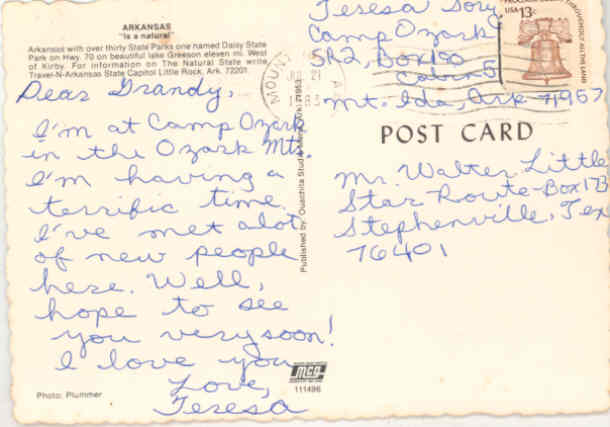 ARKANSAS
"is a natural"
Arkansas with over thirty State Parks one named Daisy State
Park on Hwy. 70 on beautiful lake Greeson eleven mi. West
of Kirby. For information on The Natural State write
Travel-N-Arkansas State Capitol Little Rock, Ark. 72201
Dear Grandy,
I'm at Camp Ozark
in the Ozark Mts.
I'm having a
terrific time.
I've met alot
of new people
here. Well,
hope to see
you very soon!
I love you
Love,
Teresa
Photo: Plummer
Published by: Ouachita
MCG
111496
MOUNT
JUN 21
Teresa Sory
Camp Ozark
SR2, Box 190
Cabin 5
Mt. Ida, Ark 71957
USA 13c
THROUGHOUT ALL THE LAND
POST CARD
Mr. Walter Little
Star Route-Box 173
Stephenville, Tex
76401